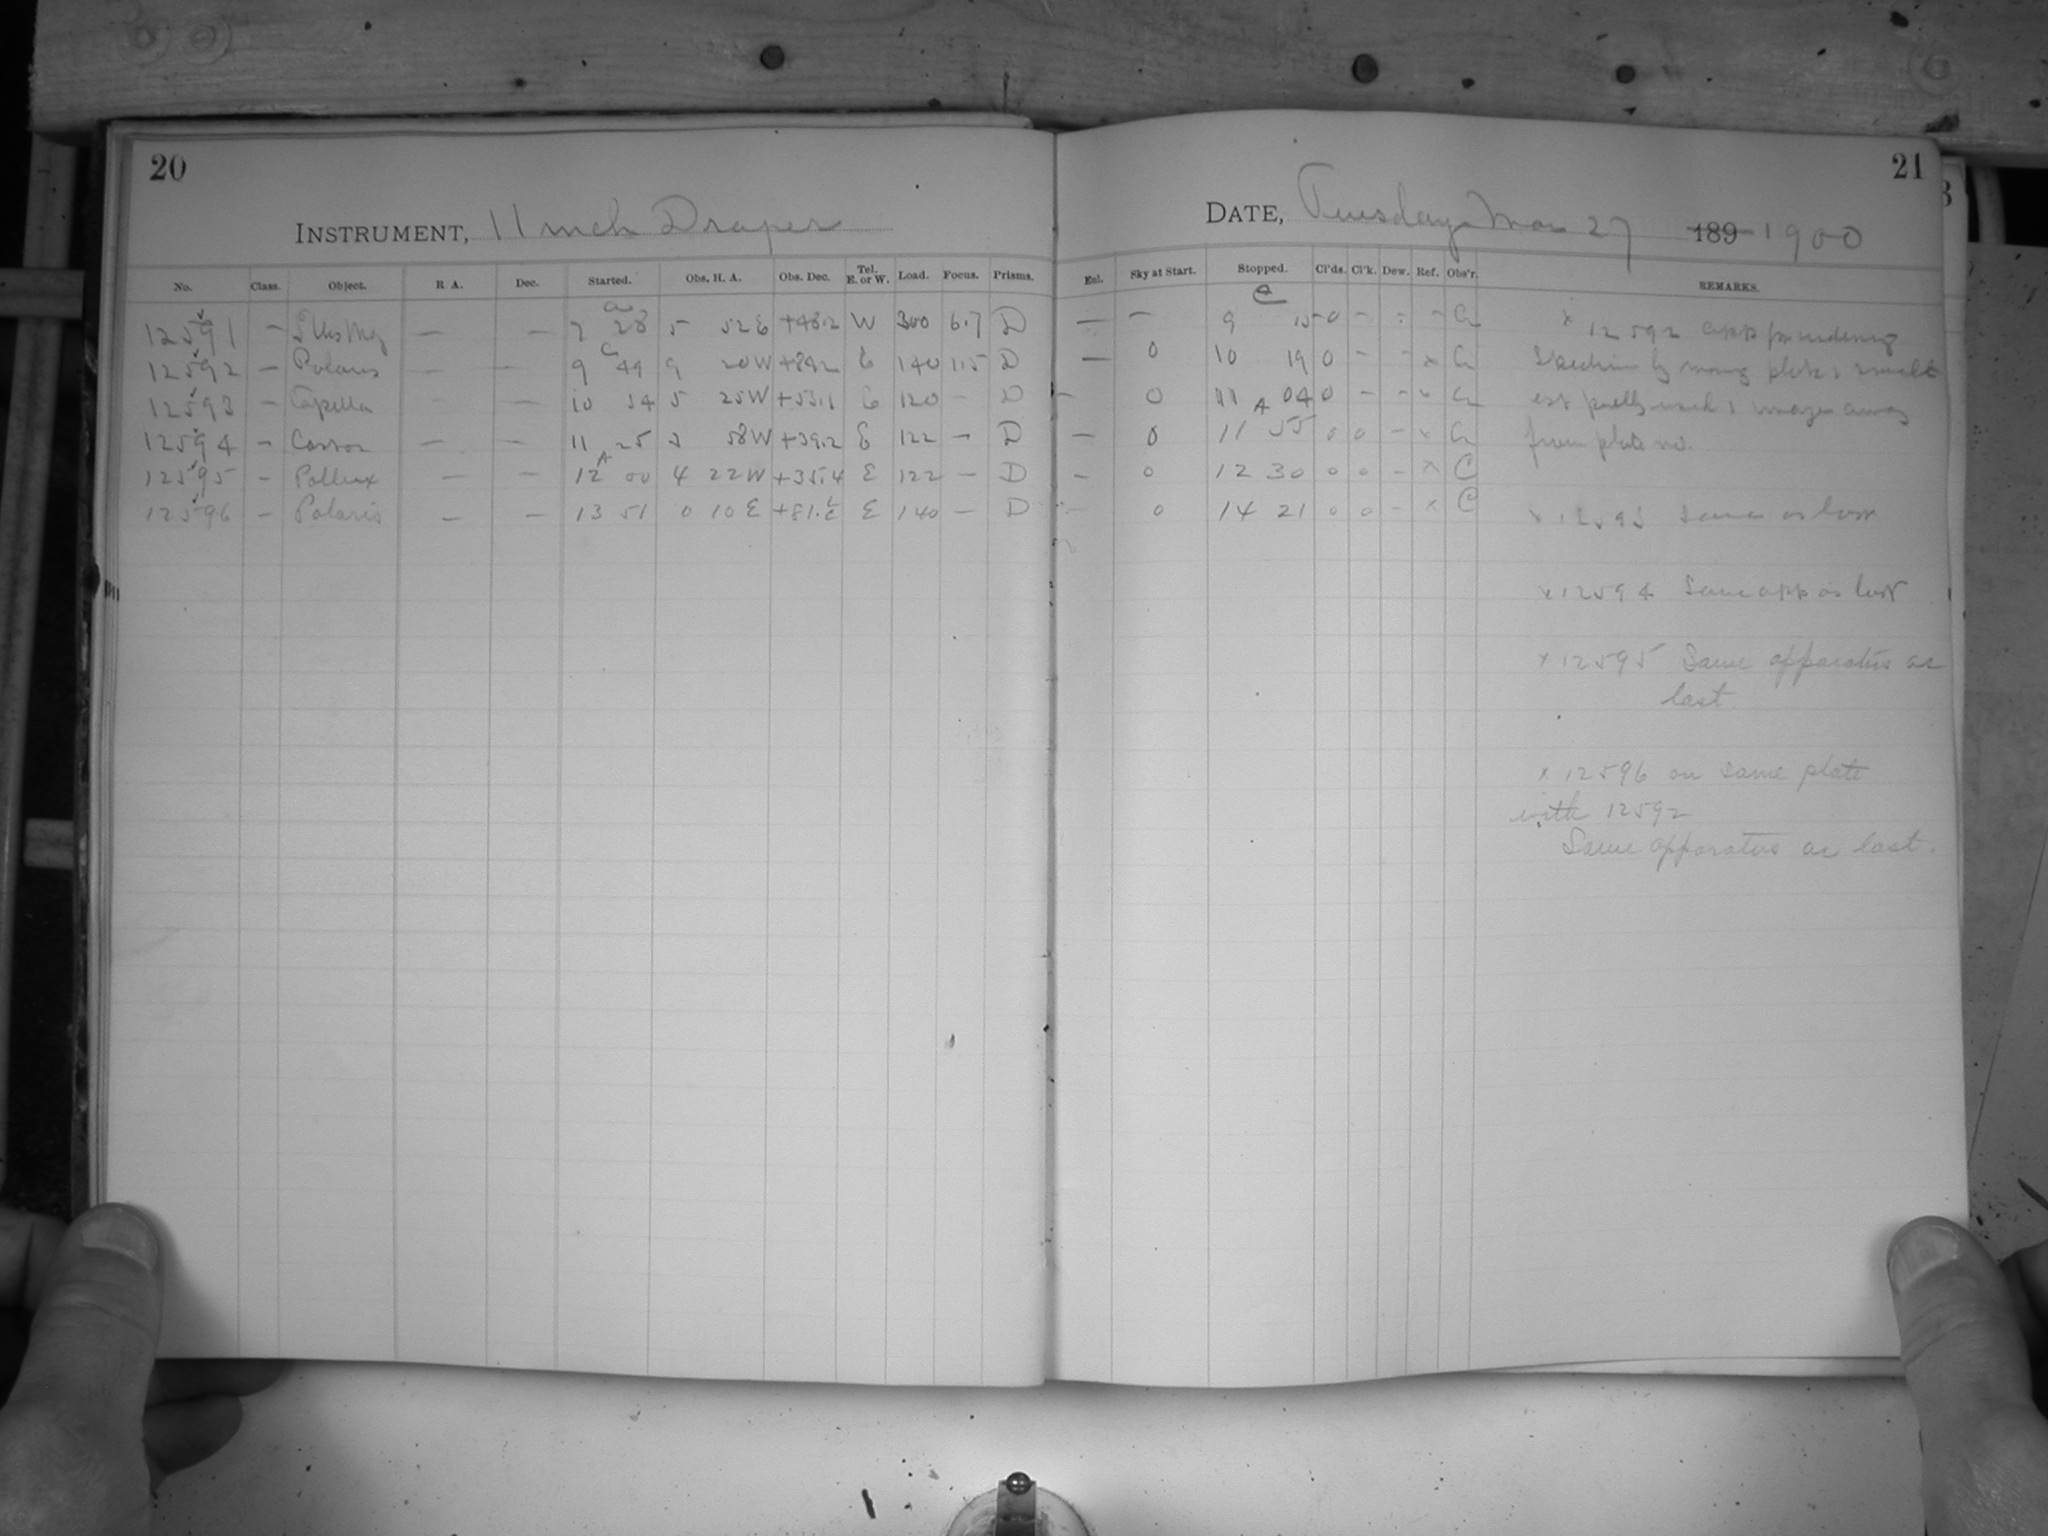 20
INSTRUMENT, 11 inch Draper
No. Class. Object. R A. Dec. Started. Obs. H. A. Obs. Dec. Tel. E. or W. Load. Focus. Prisms.
12591 — — — 28 5 52 E +48.2 W 300 6.7 D
12592 — Polaris — — 9 49 9 20 W +89.2 E 140 11.5 D
12593 — Capella — — 10 34 5 25 W +53.1 E 120 — D
12594 — Castor — — 11 25 58 W +39.2 E 122 — D
12595 — Pollux — — 12 00 4 22 W +35.4 E 122 — D
12596 — Polaris — — 13 51 0 10 E E 140 — D
21
DATE, Tuesday Mar 27 189 1900
Enl. Sky at Start. Stopped. Cl'ds. Cl'k. Dew. Ref. Obs'r. REMARKS.
— — 9 15 0
— 0 10 19 0 — — x
— 0 11 04 0 — — x
— 0 11 55 0 0 — x
— 0 12 30 0 0 — x C
0 14 21 0 0 — x C
x 12592 app for
by moving plate
images away
from plate no.
x 12593 Same as last
x 12594 Same app as last
x 12595 Same apparatus as
last
x 12596 on same plate
with 12592
Same apparatus as last.